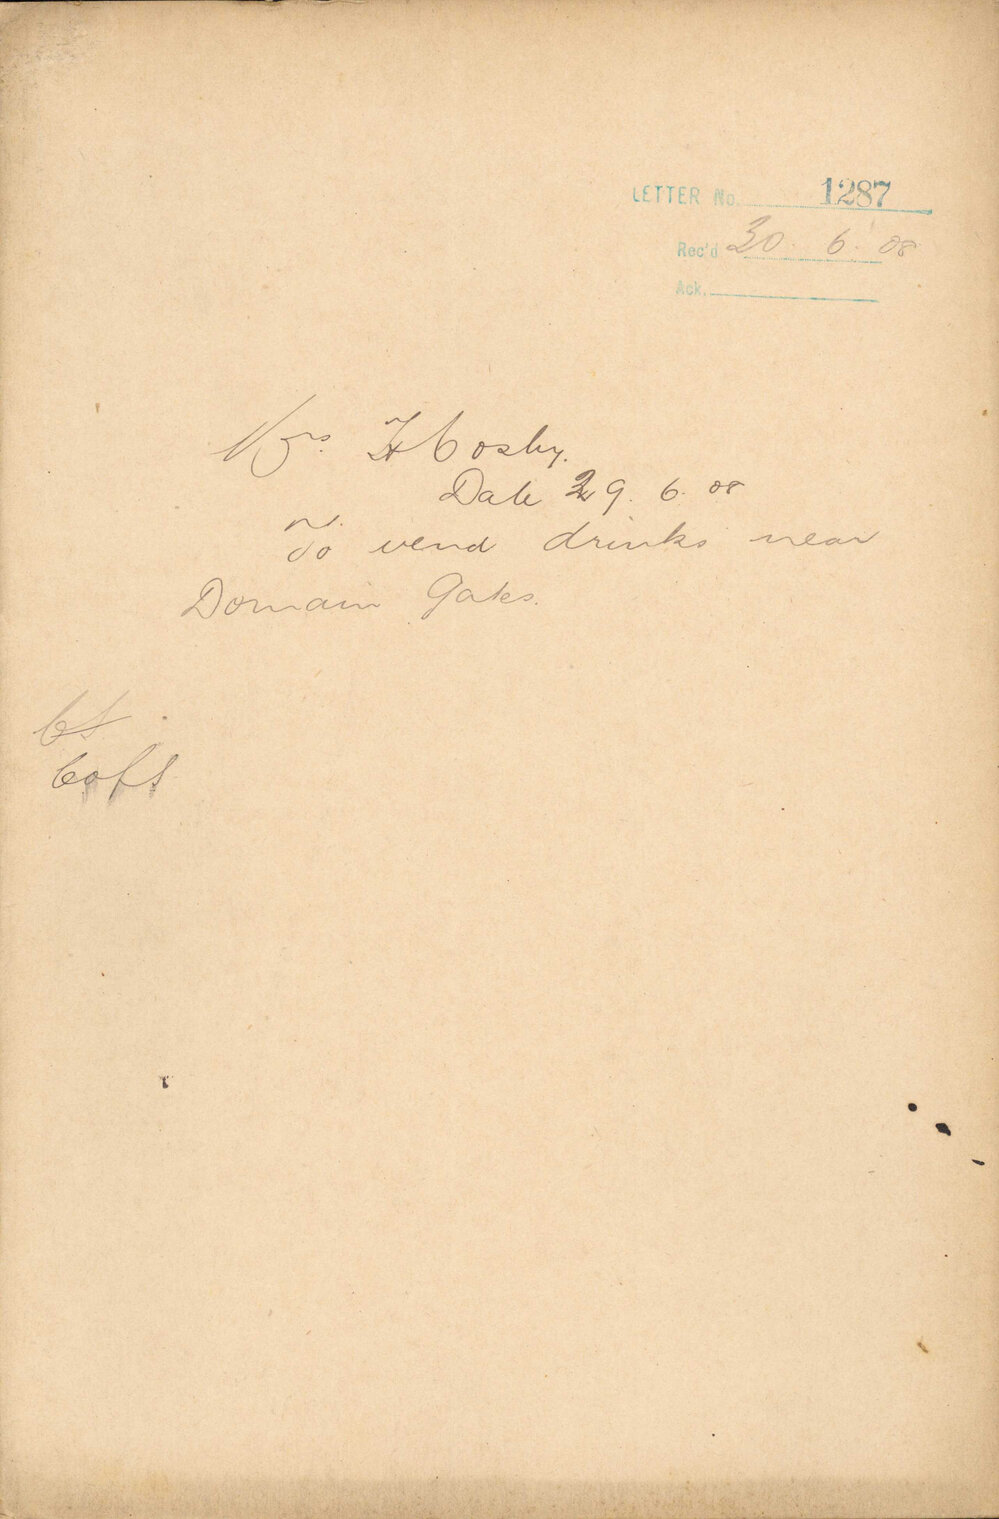 LETTER No. 1287
Rec'd 30. 6. 08
Ack.
Mrs. H Cosby.
Date 29. 6. 08
To vend drinks near
Domain Gates.
CS
CofS